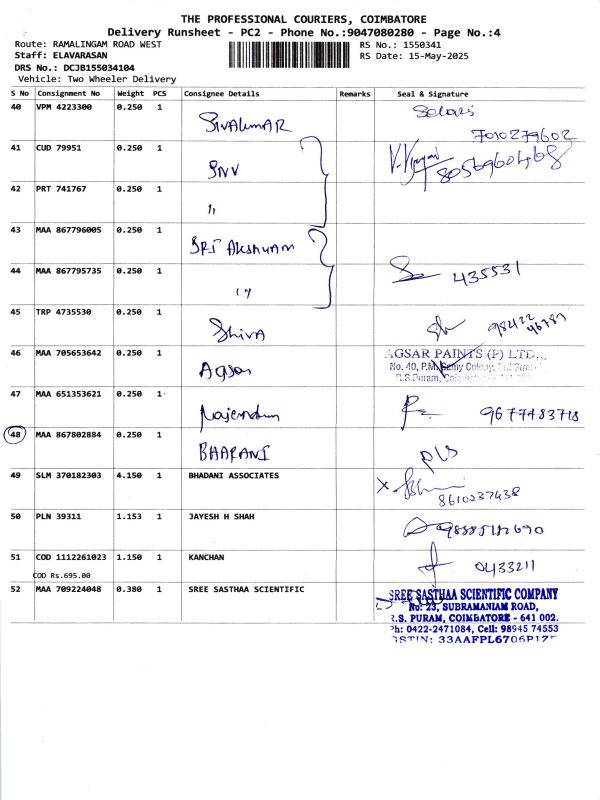 THE PROFESSIONAL COURIERS, COIMBATORE
Delivery Runsheet - PC2 - Phone No.:9047080280 - Page No.:4
Route: RAMALINGAM ROAD WEST
RS No.: 1550341
Staff: ELAVARASAN
RS Date: 15-May-2025
DRS No.: DCJB155034104
Vehicle: Two Wheeler Delivery
S No Consignment No Weight PCS Consignee Details Remarks Seal & Signature
40 VPM 4223300 0.250 1 SIVAKUMAR
7010279602
41 CUD 79951 0.250 1 SNV 8056960468
42 PRT 741767 0.250 1 "
43 MAA 867796005 0.250 1 SRI AKSHAYAM
44 MAA 867795735 0.250 1 " 435531
45 TRP 4735530 0.250 1 Shiva 98422
46 MAA 705653642 0.250 1 Agsar AGSAR PAINTS (P) LTD.,
No. 40, P.M. Samy Colony,
R.S.Puram,
47 MAA 651353621 0.250 1 Rajendran 9677483718
48 MAA 867802884 0.250 1 BHARANI
49 SLM 370182303 4.150 1 BHADANI ASSOCIATES X
8610237438
50 PLN 39311 1.153 1 JAYESH H SHAH
51 COD 1112261023 1.150 1 KANCHAN 0433211
COD Rs.695.00
52 MAA 709224048 0.380 1 SREE SASTHAA SCIENTIFIC SREE SASTHAA SCIENTIFIC COMPANY
No: 23, SUBRAMANIAM ROAD,
R.S. PURAM, COIMBATORE - 641 002.
Ph: 0422-2471084, Cell: 98945 74553
GSTIN: 33AAFPL6706P1Z